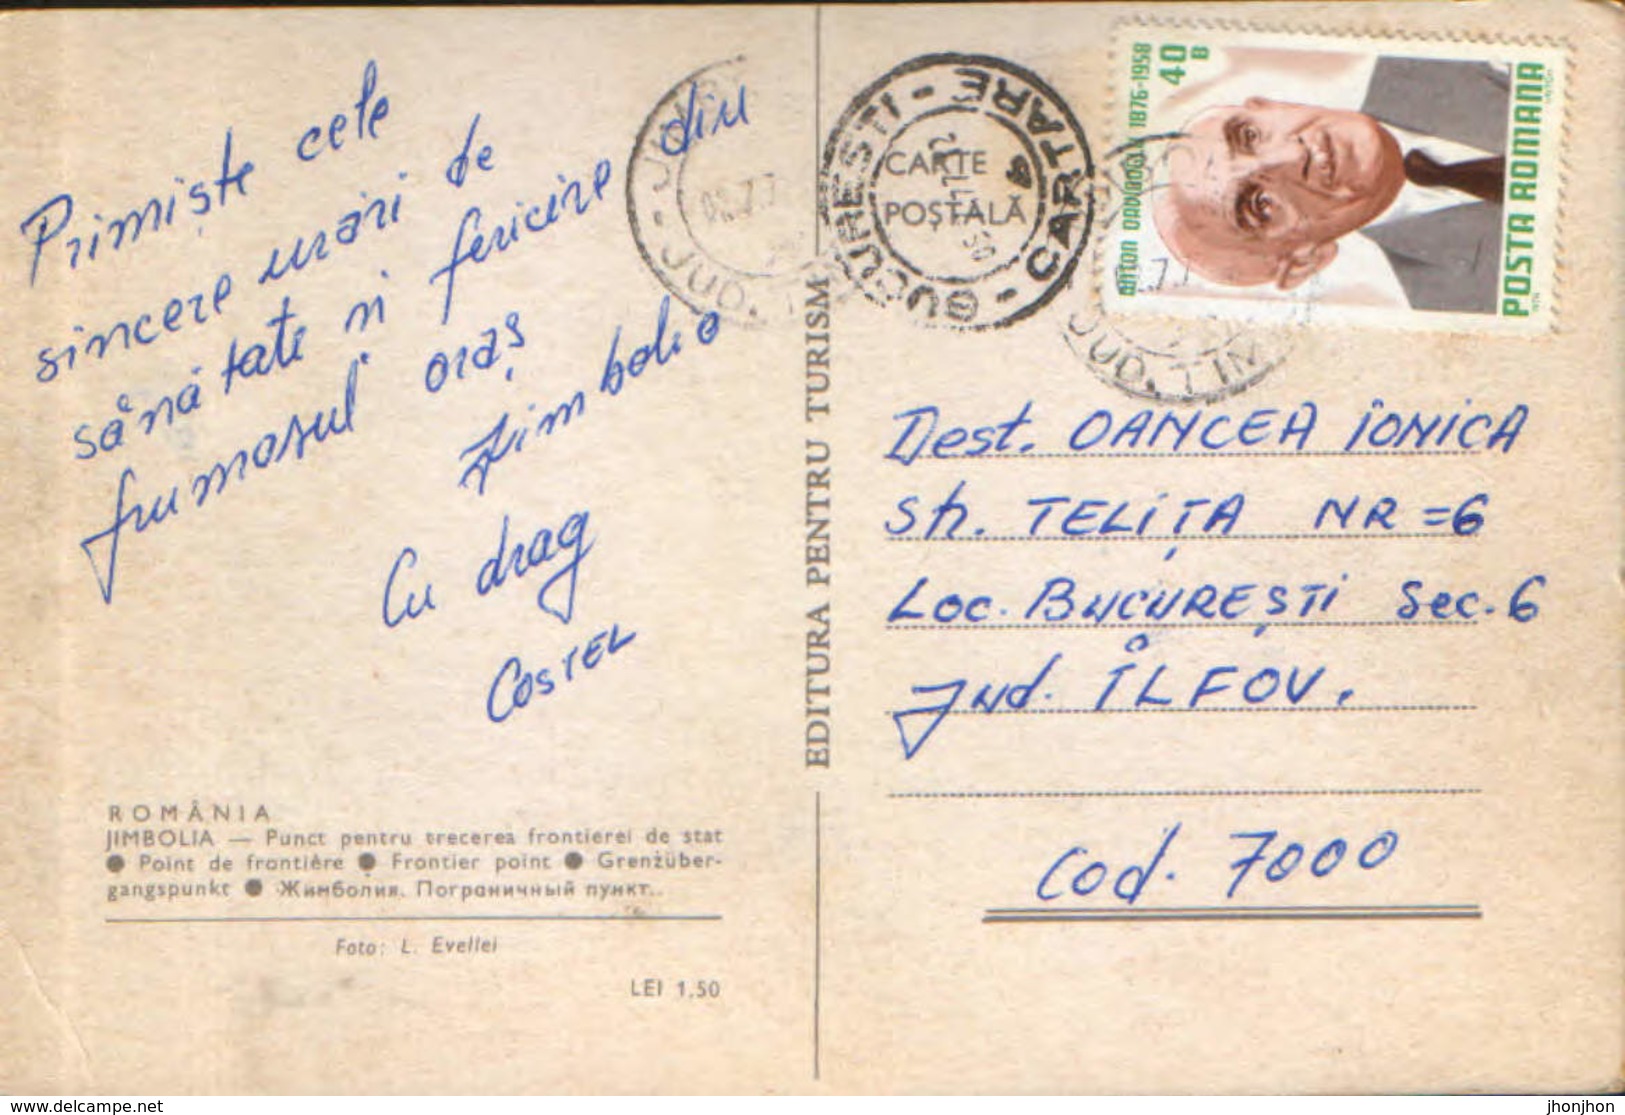 Primiște cele
sincere urări de
sănătate și fericire din
frumosul oraș
Jimbolia
Cu drag
COSTEL
ROMÂNIA
JIMBOLIA — Punct pentru trecerea frontierei de stat
● Point de frontière ● Frontier point ● Grenzüber-
gangspunkt ● Жимболия. Пограничный пункт.
Foto: L. Evellei
LEI 1,50
EDITURA PENTRU TURISM
CARTE
POȘTALĂ
BUCUREȘTI - CARTARE
JUD. TIM
JUD. TIM
ANTON DAVIDOGLU 1876-1958
40 B
POSTA ROMANA
Dest. OANCEA IONICA
Str. TELIȚA NR=6
Loc. BUCUREȘTI Sec. 6
Jud. ILFOV.
Cod. 7000
www.delcampe.net
jhonjhon